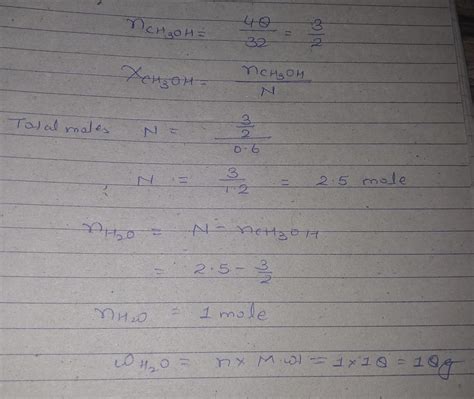 nCH₃OH = 48/32 = 3/2
XCH₃OH = nCH₃OH/N
Total moles N = (3/2)/0.6
N = 3/1.2 = 2.5 mole
nH₂O = N - nCH₃OH
= 2.5 - 3/2
nH₂O = 1 mole
ωH₂O = n x M.wt = 1x18 = 18g